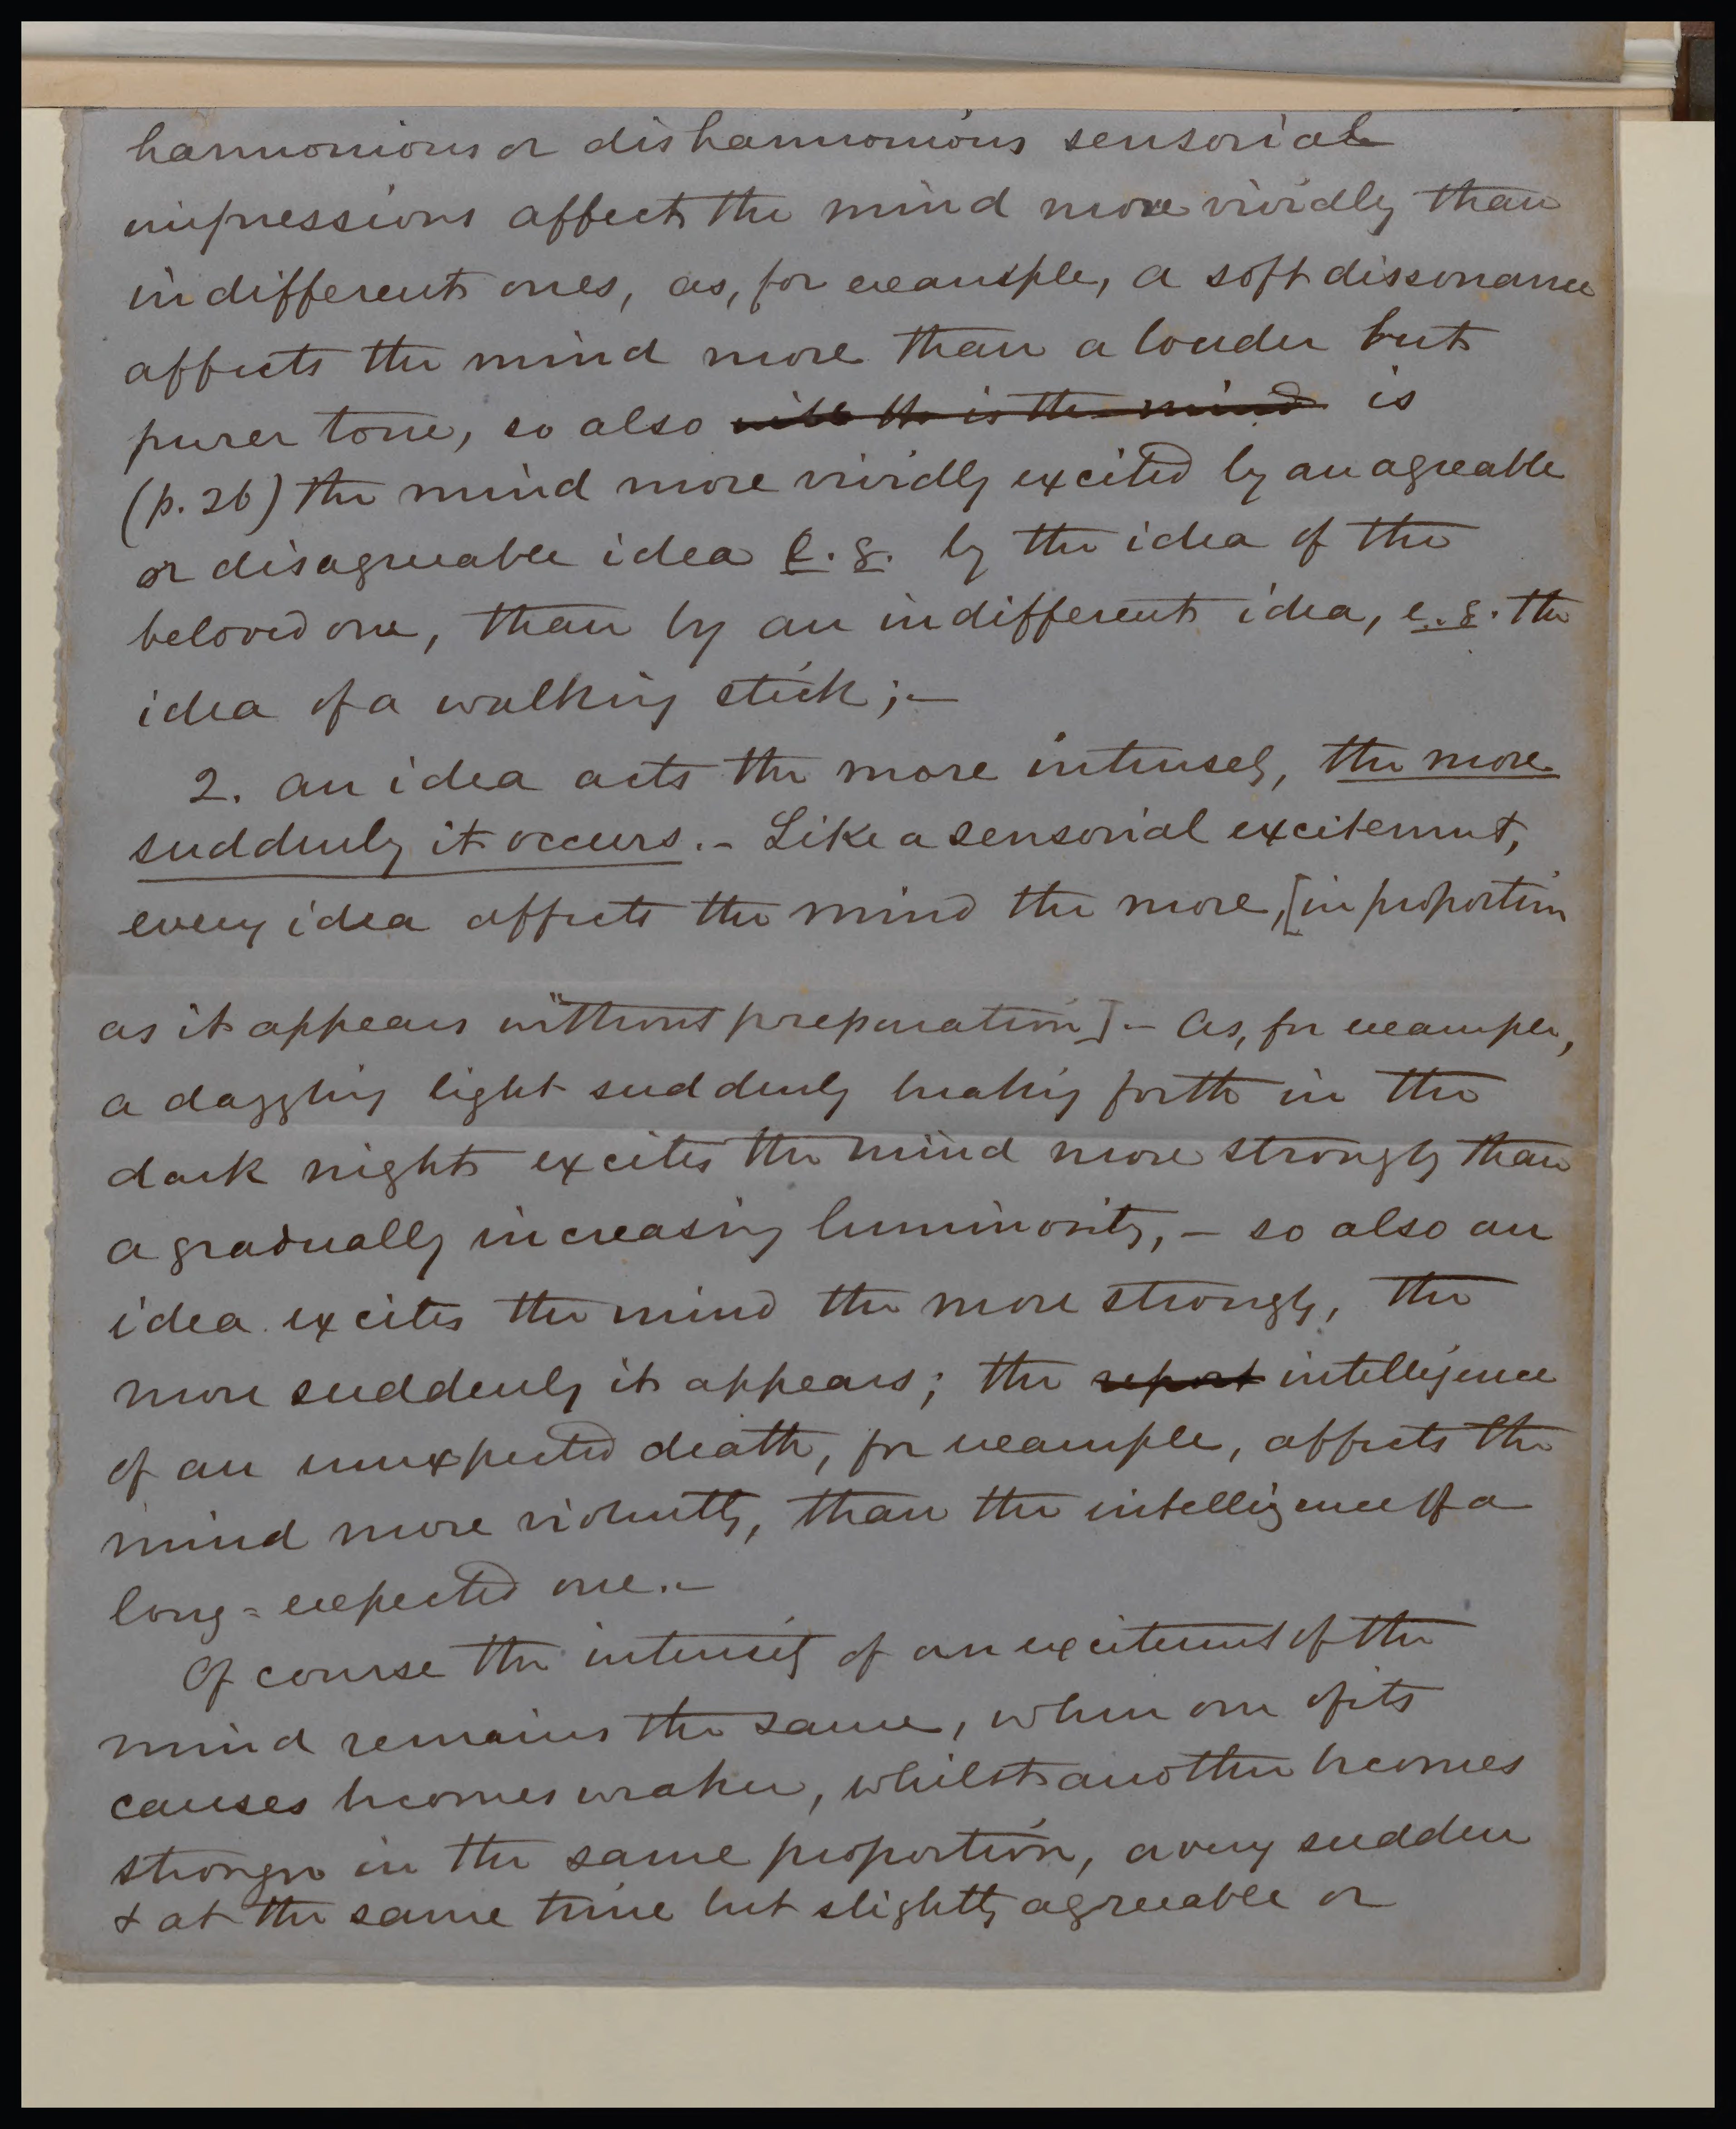 harmonious or disharmonious sensorial
impressions affect the mind more vividly than
indifferent ones, as, for example, a soft dissonance
affects the mind more than a louder but
purer tone, so also will the is the mind is
(p. 26) the mind more vividly excited by an agreable
or disagreeable idea e.g. by the idea of the
beloved one, than by an indifferent idea, e.g. the
idea of a walking stick;—
2. an idea acts the more intensely, the more
suddenly it occurs.— Like a sensorial excitement,
every idea affects the mind the more, [in proportion
as it appears without preparation].— As, for example,
a dazzling light suddenly breaking forth in the
dark night excites the mind more strongly than
a gradually increasing luminosity,— so also an
idea excites the mind the more strongly, the
more suddenly it appears; the report intelligence
of an unexpected death, for example, affects the
mind more violently, than the intelligence of a
long=expected one.—
Of course the intensity of an excitement of the
mind remains the same, when one of its
causes becomes weaker, whilst another becomes
stronger in the same proportion, a very sudden
& at the same time but slightly agreeable or